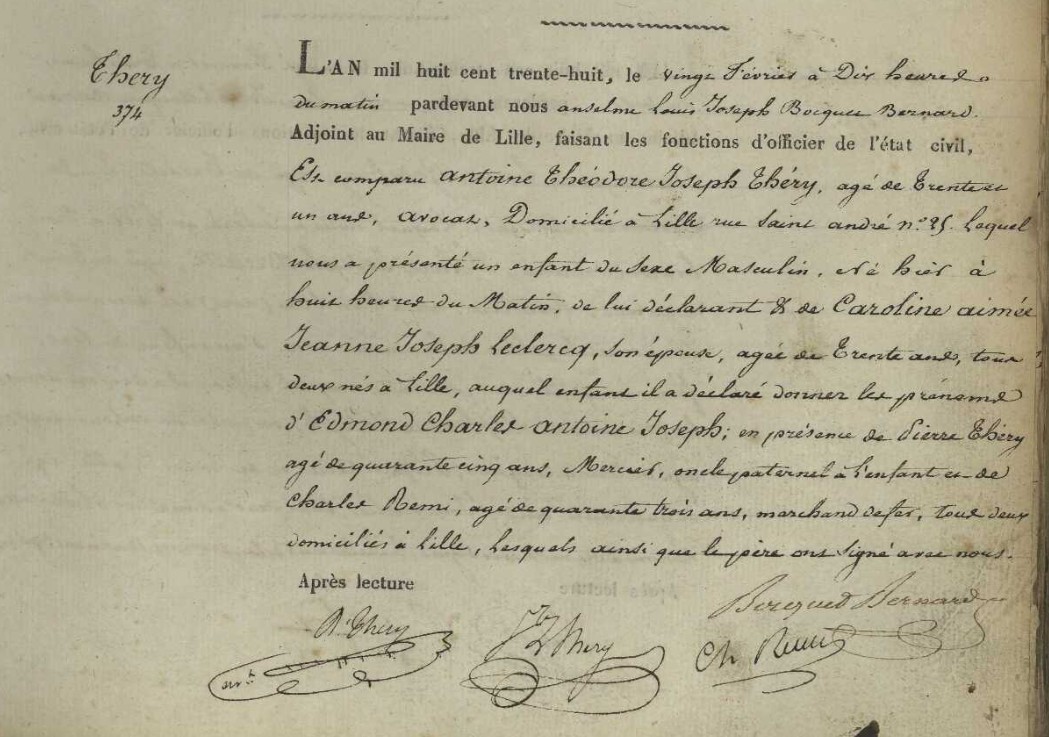 Théry
374
L'AN mil huit cent trente-huit, le vingt Février à Dix heures
du matin pardevant nous anselme Louis Joseph Bocquet Bernard.
Adjoint au Maire de Lille, faisant les fonctions d'officier de l'état civil,
Est comparu antoine Théodore Joseph Théry, agé de Trente et
un ans, avocat, Domicilié à Lille rue Saint andré n.° 25. Lequel
nous a présenté un enfant du Sexe Masculin, Né hier à
huit heures du Matin, de lui déclarant & de Caroline aimée
Jeanne Joseph Leclercq, Son épouse, agée de Trente ans, tous
deux nés à Lille, auquel enfant il a déclaré donner les prénoms
d'Edmond Charles antoine Joseph; en présence de Pierre Théry
agé de quarante cinq ans, Mercier, oncle paternel à l'enfant et de
Charles Remi, agé de quarante trois ans, marchand de fer, tous deux
domiciliés à Lille, Lesquels ainsi que le père ont Signé avec nous.
Après lecture
Bocquet Bernard
P. Théry
Théry
Ch Remi